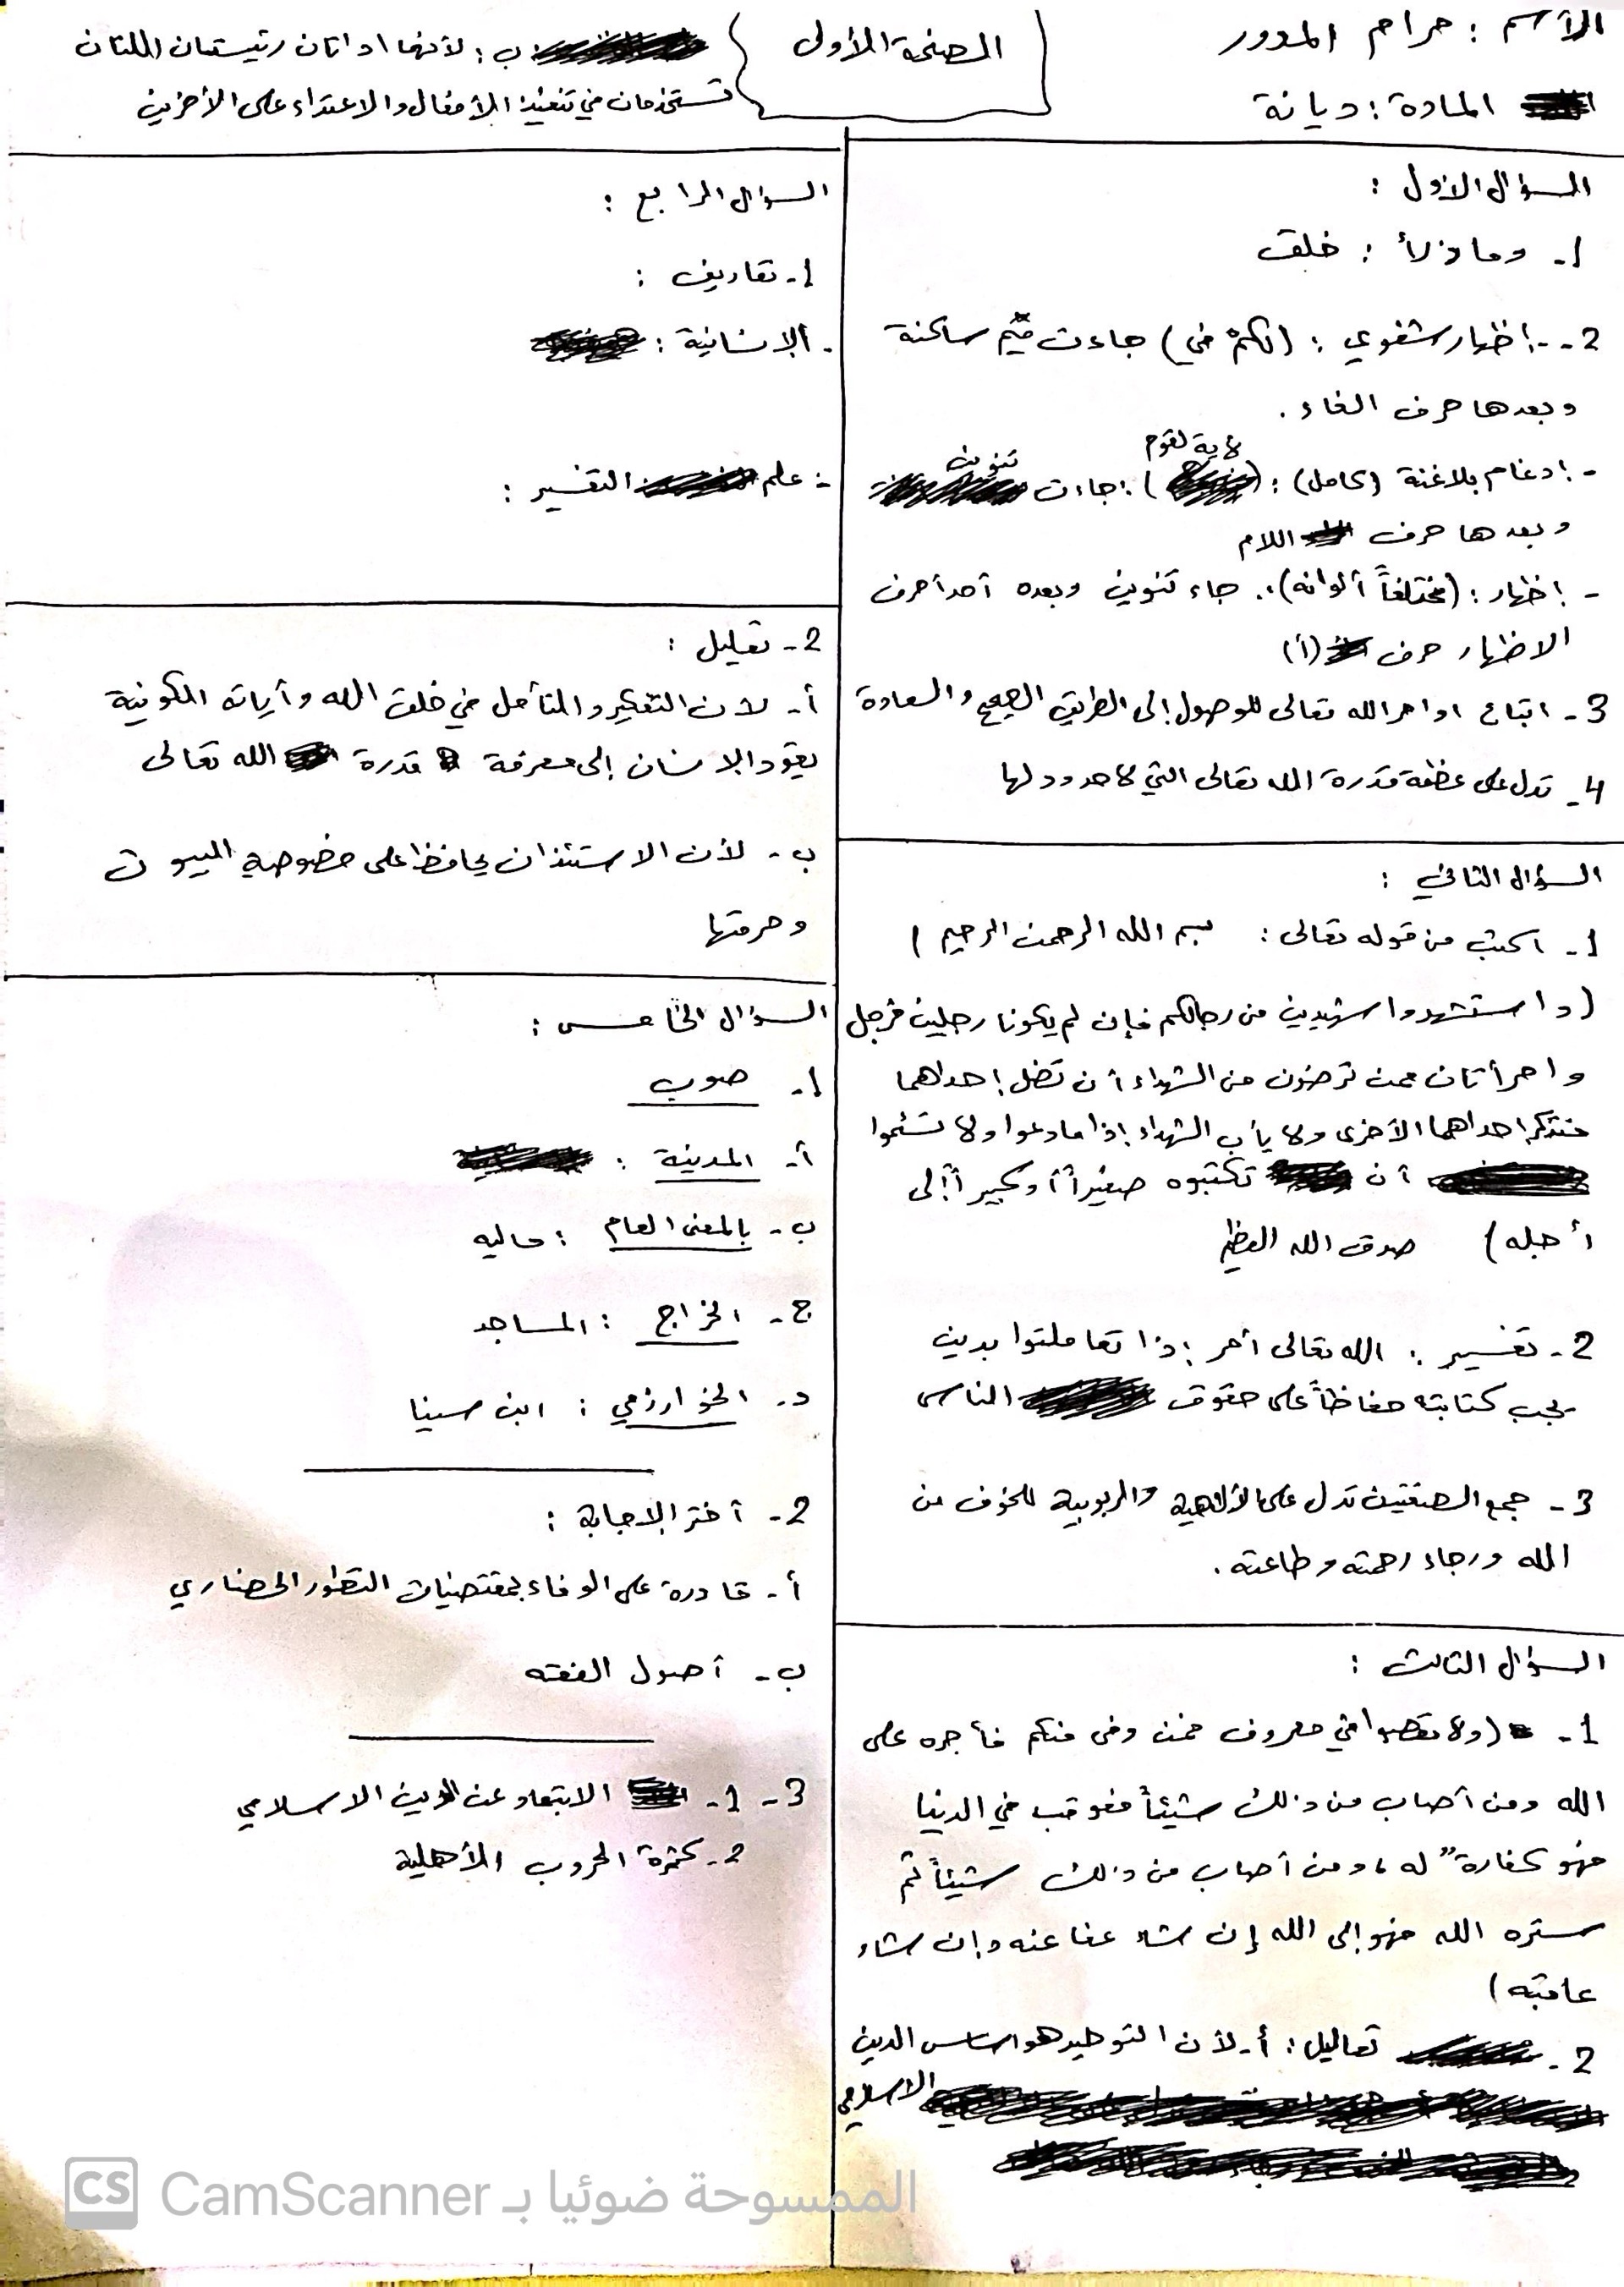 الأسم : مرام المدور
المادة : ديانة
الصفحة الأولى
السؤال الأول :
1- وما ذرأ : خلق
2- - إظهار شفوي : (لكم في) جاءت ميم ساكنة
وبعدها حرف الفاء .
- إدغام بلاغنة (كامل) : (لآية لقوم) : جاءت تنوين
وبعدها حرف اللام
- إظهار : (مختلفاً ألوانه) .. جاء تنوين وبعده أحد أحرف
الاظهار حرف (أ)
3- اتباع اوامر الله تعالى للوصول إلى الطريق الصحيح والسعادة
4- تدل على عظمة قدرة الله تعالى التي لا حدود لها
السؤال الثاني :
1- اكتب من قوله تعالى : بسم الله الرحمن الرحيم )
(واستشهدوا شهيدين من رجالكم فإن لم يكونا رجلين فرجل
وامرأتان ممن ترضون من الشهداء أن تضل إحداهما
فتذكر احداهما الأخرى ولا يأب الشهداء إذا ما دعوا ولا تسئموا
أن تكتبوه صغيراً أو كبيراً إلى
أجله ) صدق الله العظيم
2- تفسير : الله تعالى أمر إذا تعاملتوا بدين
يجب كتابته حفاظاً على حقوق الناس
3- جمع الصفتين تدل على الألهية والربوبية للخوف من
الله ورجاء رحمته وطاعته .
السؤال الثالث :
1- (ولا تعصوا في معروف فمن وفى منكم فأجره على
الله ومن أصاب من ذلك شيئاً فعوقب في الدنيا
فهو كفارة" له ، ومن أصاب من ذلك شيئاً ثم
ستره الله فهو إلى الله إن شاء عفا عنه وإن شاء
عاقبه )
2- تعاليل : أ- لأن التوحيد هو اساس الدين
الاسلامي
ب : لأنهما اداتان رئيستان اللتان
تستخدمان في تنفيذ الأفعال والاعتداء على الأخرين
السؤال الرابع :
1- تعاريف :
- الإنسانية :
- علم التفسير :
2- تعليل :
أ- لان التفكير والتأمل في خلق الله وأياته الكونية
يقود الإنسان إلى معرفة قدرة الله تعالى
ب- لأن الاستئذان يحافظ على خصوصية البيوت
وحرمتها
السؤال الخامس :
1- صوب
أ- المدينة :
ب- بالمعنى العام : ماليه
ج- الخراج : المساجد
د- الخوارزمي : ابن سينا
2- أختر الإجابة :
أ- قادرة على الوفاء بمقتضيات التطور الحضاري
ب- أصول الفقه
3- 1- الابتعاد عن الدين الاسلامي
2- كثرة الحروب الأهلية
الممسوحة ضوئيا بـ CamScanner
CS